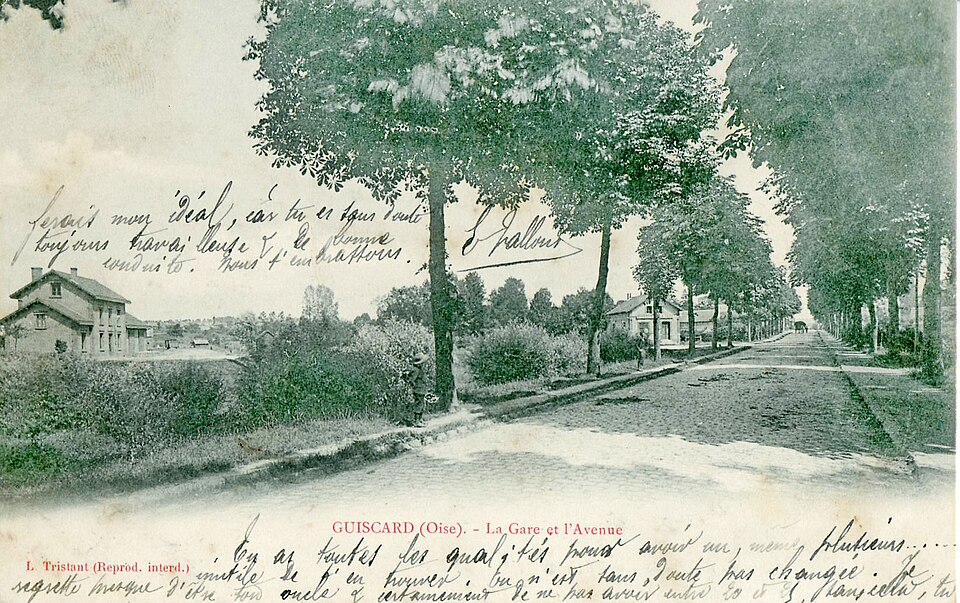 ferais mon idéal, car tu es sans doute
toujours travailleuse & de bonne
conduite. Nous t'embrassons.
GUISCARD (Oise). - La Gare et l'Avenue
L. Tristant (Reprod. interd.)
Tu as toutes les qualités pour avoir un, même plusieurs.....
inutile de t'en trouver. tu n'est sans doute pas changée. Je
regrette presque d'être ton oncle & certainement de ne pas avoir entre 20 et 25, Jeannette, tu